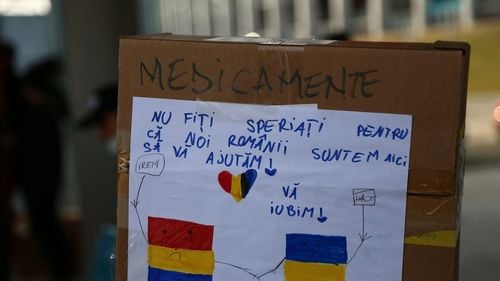 MEDICAMENTE
NU FIȚI SPERIAȚI PENTRU
CĂ NOI ROMÂNII SUNTEM AICI
SĂ VĂ AJUTĂM!
VREM
VĂ
IUBIM!